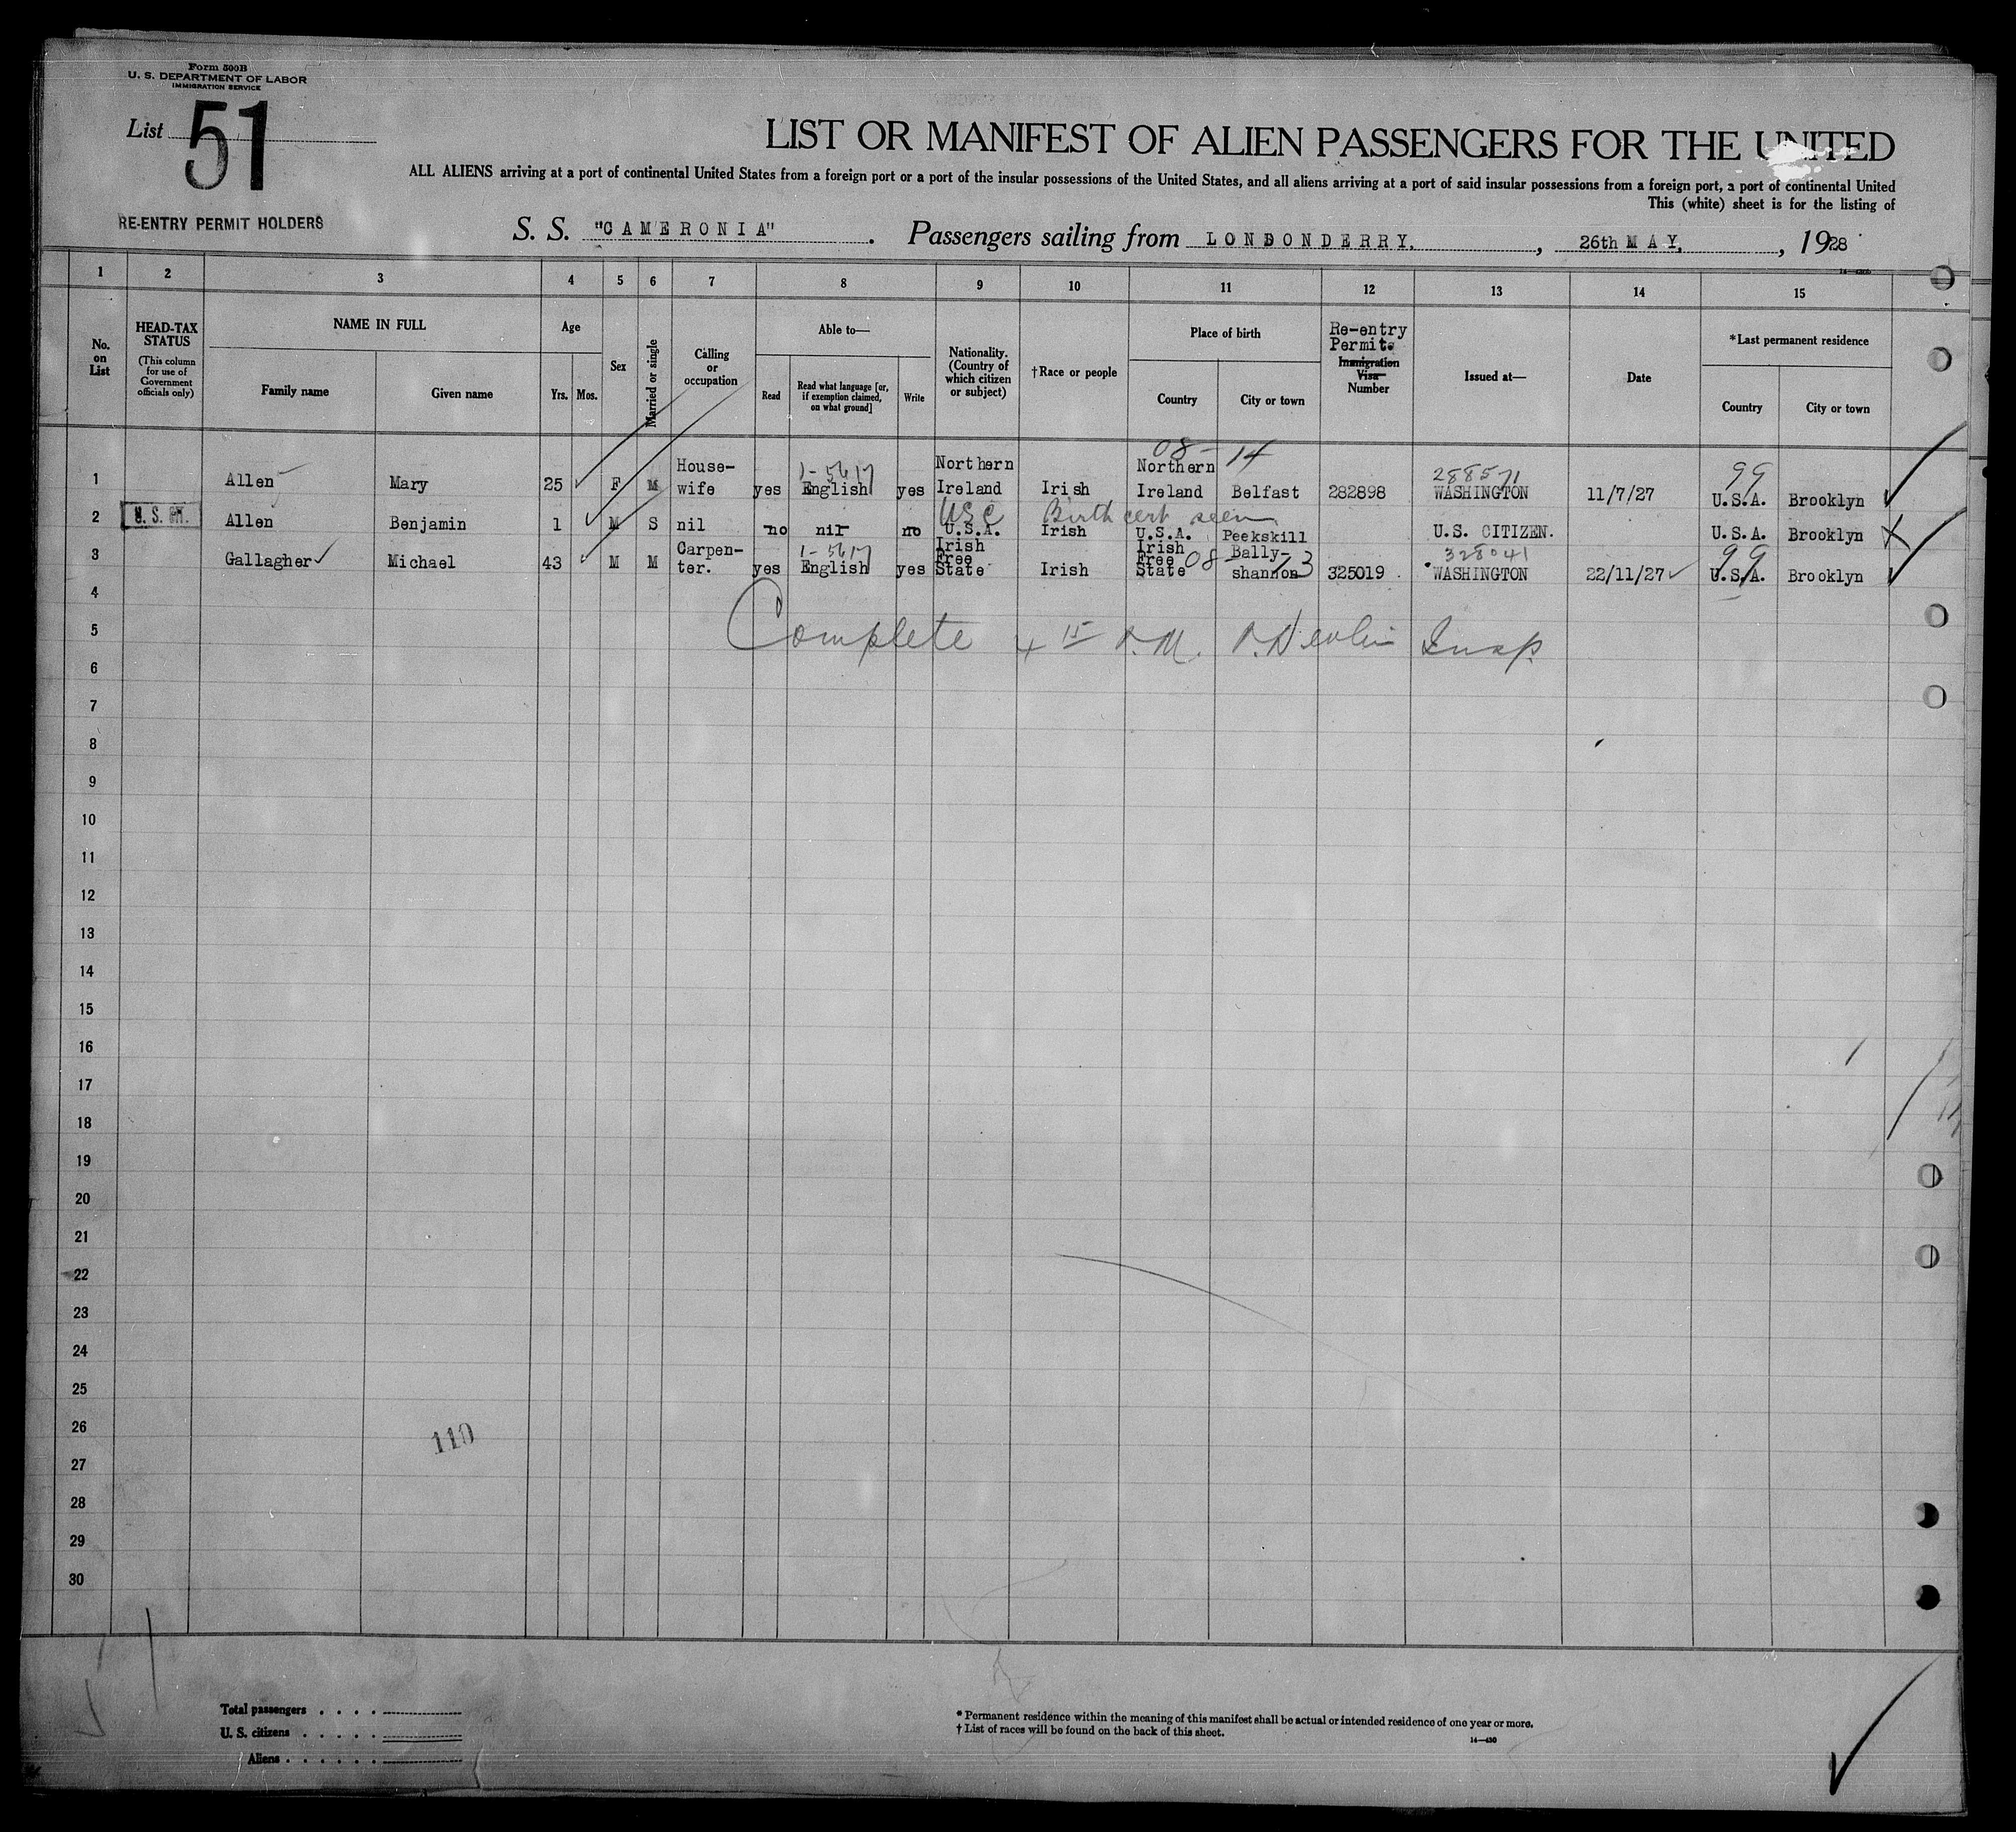 Form 500B
U. S. DEPARTMENT OF LABOR
IMMIGRATION SERVICE
List 51
LIST OR MANIFEST OF ALIEN PASSENGERS FOR THE UNITED
ALL ALIENS arriving at a port of continental United States from a foreign port or a port of the insular possessions of the United States, and all aliens arriving at a port of said insular possessions from a foreign port, a port of continental United
This (white) sheet is for the listing of
RE-ENTRY PERMIT HOLDERS
S. S. "CAMERONIA" . Passengers sailing from LONDONDERRY. , 26th MAY, , 1928
1 2 3 4 5 6 7 8 9 10 11 12 13 14 15
No. on List
HEAD-TAX STATUS
(This column for use of Government officials only)
NAME IN FULL
Family name Given name
Age
Yrs. Mos.
Sex
Married or single
Calling or occupation
Able to—
Read
Read what language [or, if exemption claimed, on what ground]
Write
Nationality. (Country of which citizen or subject)
†Race or people
Place of birth
Country City or town
Re-entry Permits
Immigration Visa Number
Issued at—
Date
*Last permanent residence
Country City or town
08 - 14
1 Allen Mary 25 F M House-wife yes 1-5617 English yes Northern Ireland Irish Northern Ireland Belfast 282898 288571 WASHINGTON 11/7/27 99 U.S.A. Brooklyn
USC Birth cert seen
2 Allen Benjamin 1 M S nil no nil no U.S.A. Irish U.S.A. Peekskill U.S. CITIZEN. U.S.A. Brooklyn
3 Gallagher Michael 43 M M Carpen-ter. yes 1-5617 English yes Irish Free State Irish Irish Free State 08-73 Bally-shannon 325019 328041 WASHINGTON 22/11/27 99 U.S.A. Brooklyn
4
5 Complete 4 15 P.M. P. Devlin Insp.
6
7
8
9
10
11
12
13
14
15
16
17
18
19
20
21
22
23
24
25
26
110
27
28
29
30
Total passengers . . . .
U. S. citizens . . . . .
Aliens . . . . . .
* Permanent residence within the meaning of this manifest shall be actual or intended residence of one year or more.
† List of races will be found on the back of this sheet.
14—430